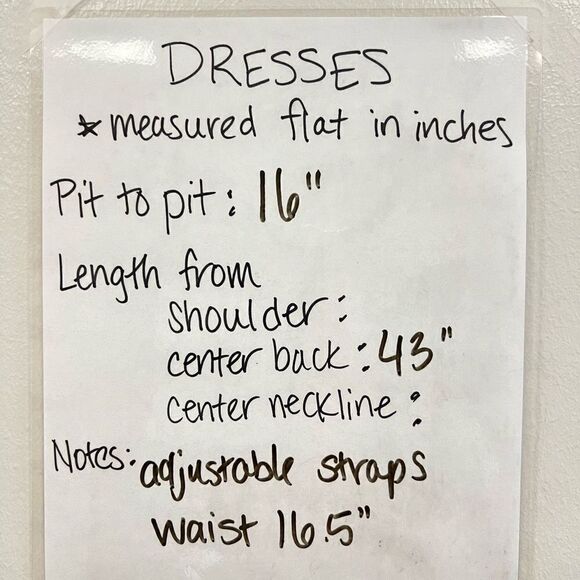 DRESSES
* measured flat in inches
Pit to pit: 16"
Length from
shoulder:
center back: 43"
center neckline:
Notes: adjustable straps
waist 16.5"